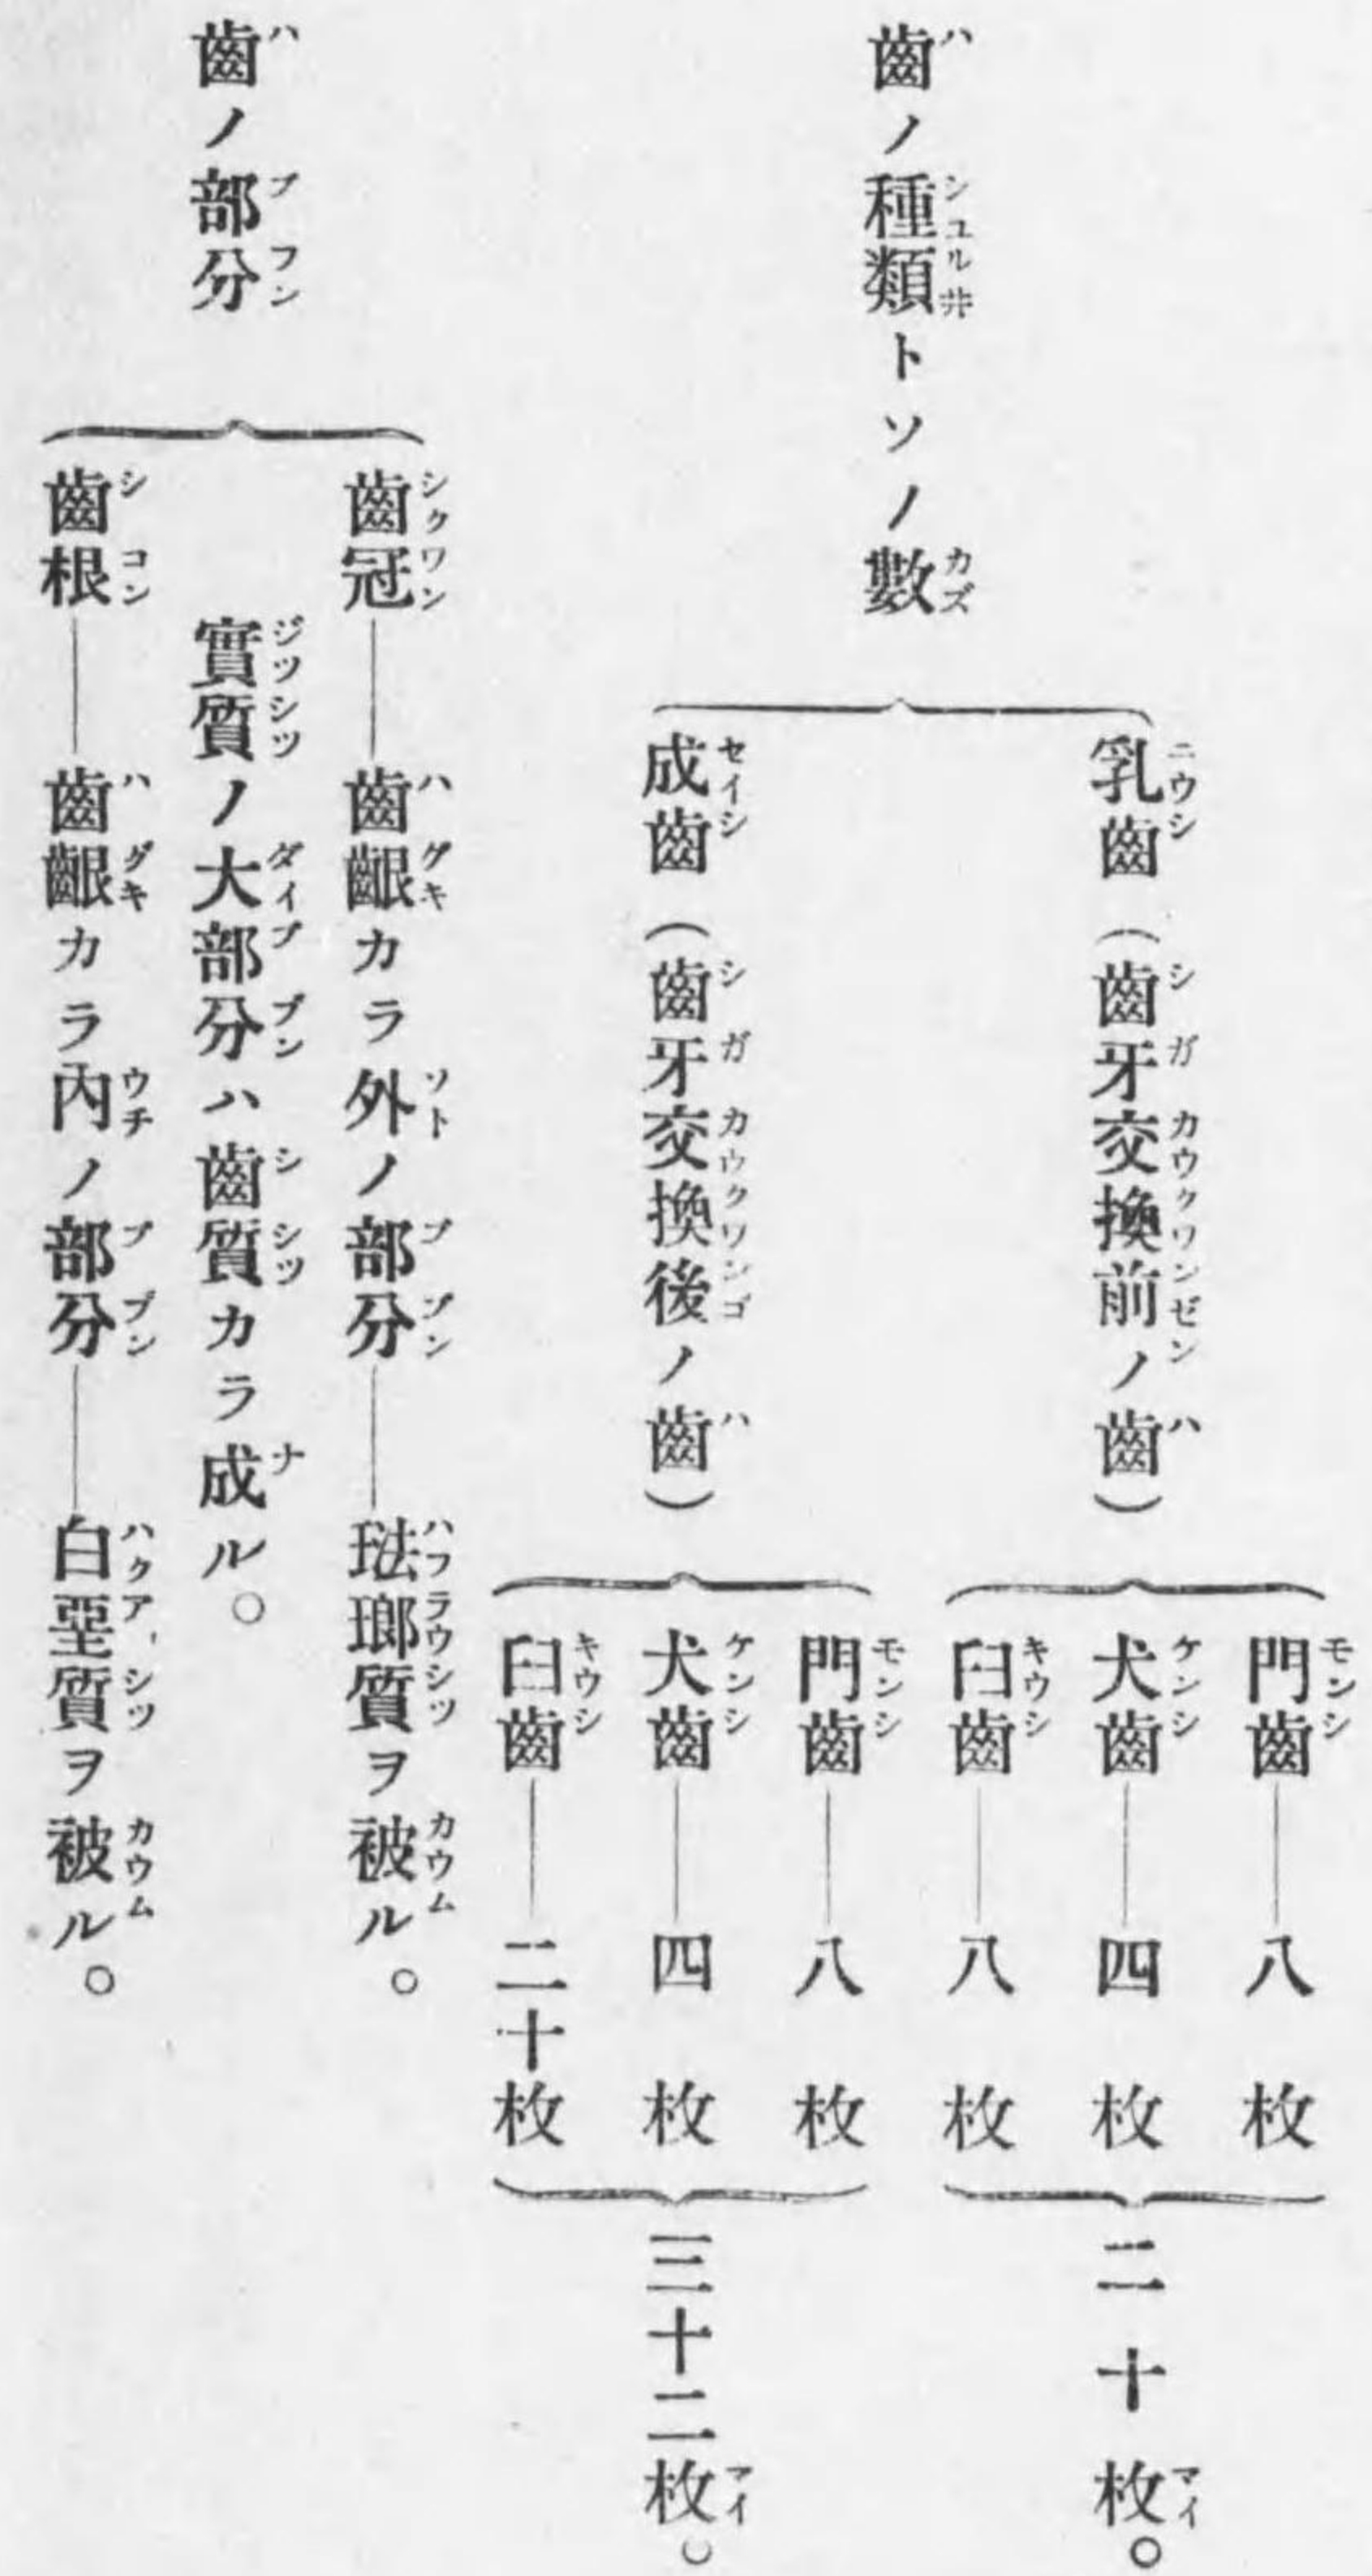 齒ノ種類トソノ數
乳齒(齒牙交換前ノ齒)
門齒——八枚
犬齒——四枚
臼齒——八枚
二十枚。
成齒(齒牙交換後ノ齒)
門齒——八枚
犬齒——四枚
臼齒——二十枚
三十二枚。
齒ノ部分
齒冠——齒齦カラ外ノ部分——琺瑯質ヲ被ル。
實質ノ大部分ハ齒質カラ成ル。
齒根——齒齦カラ內ノ部分——白堊質ヲ被ル。